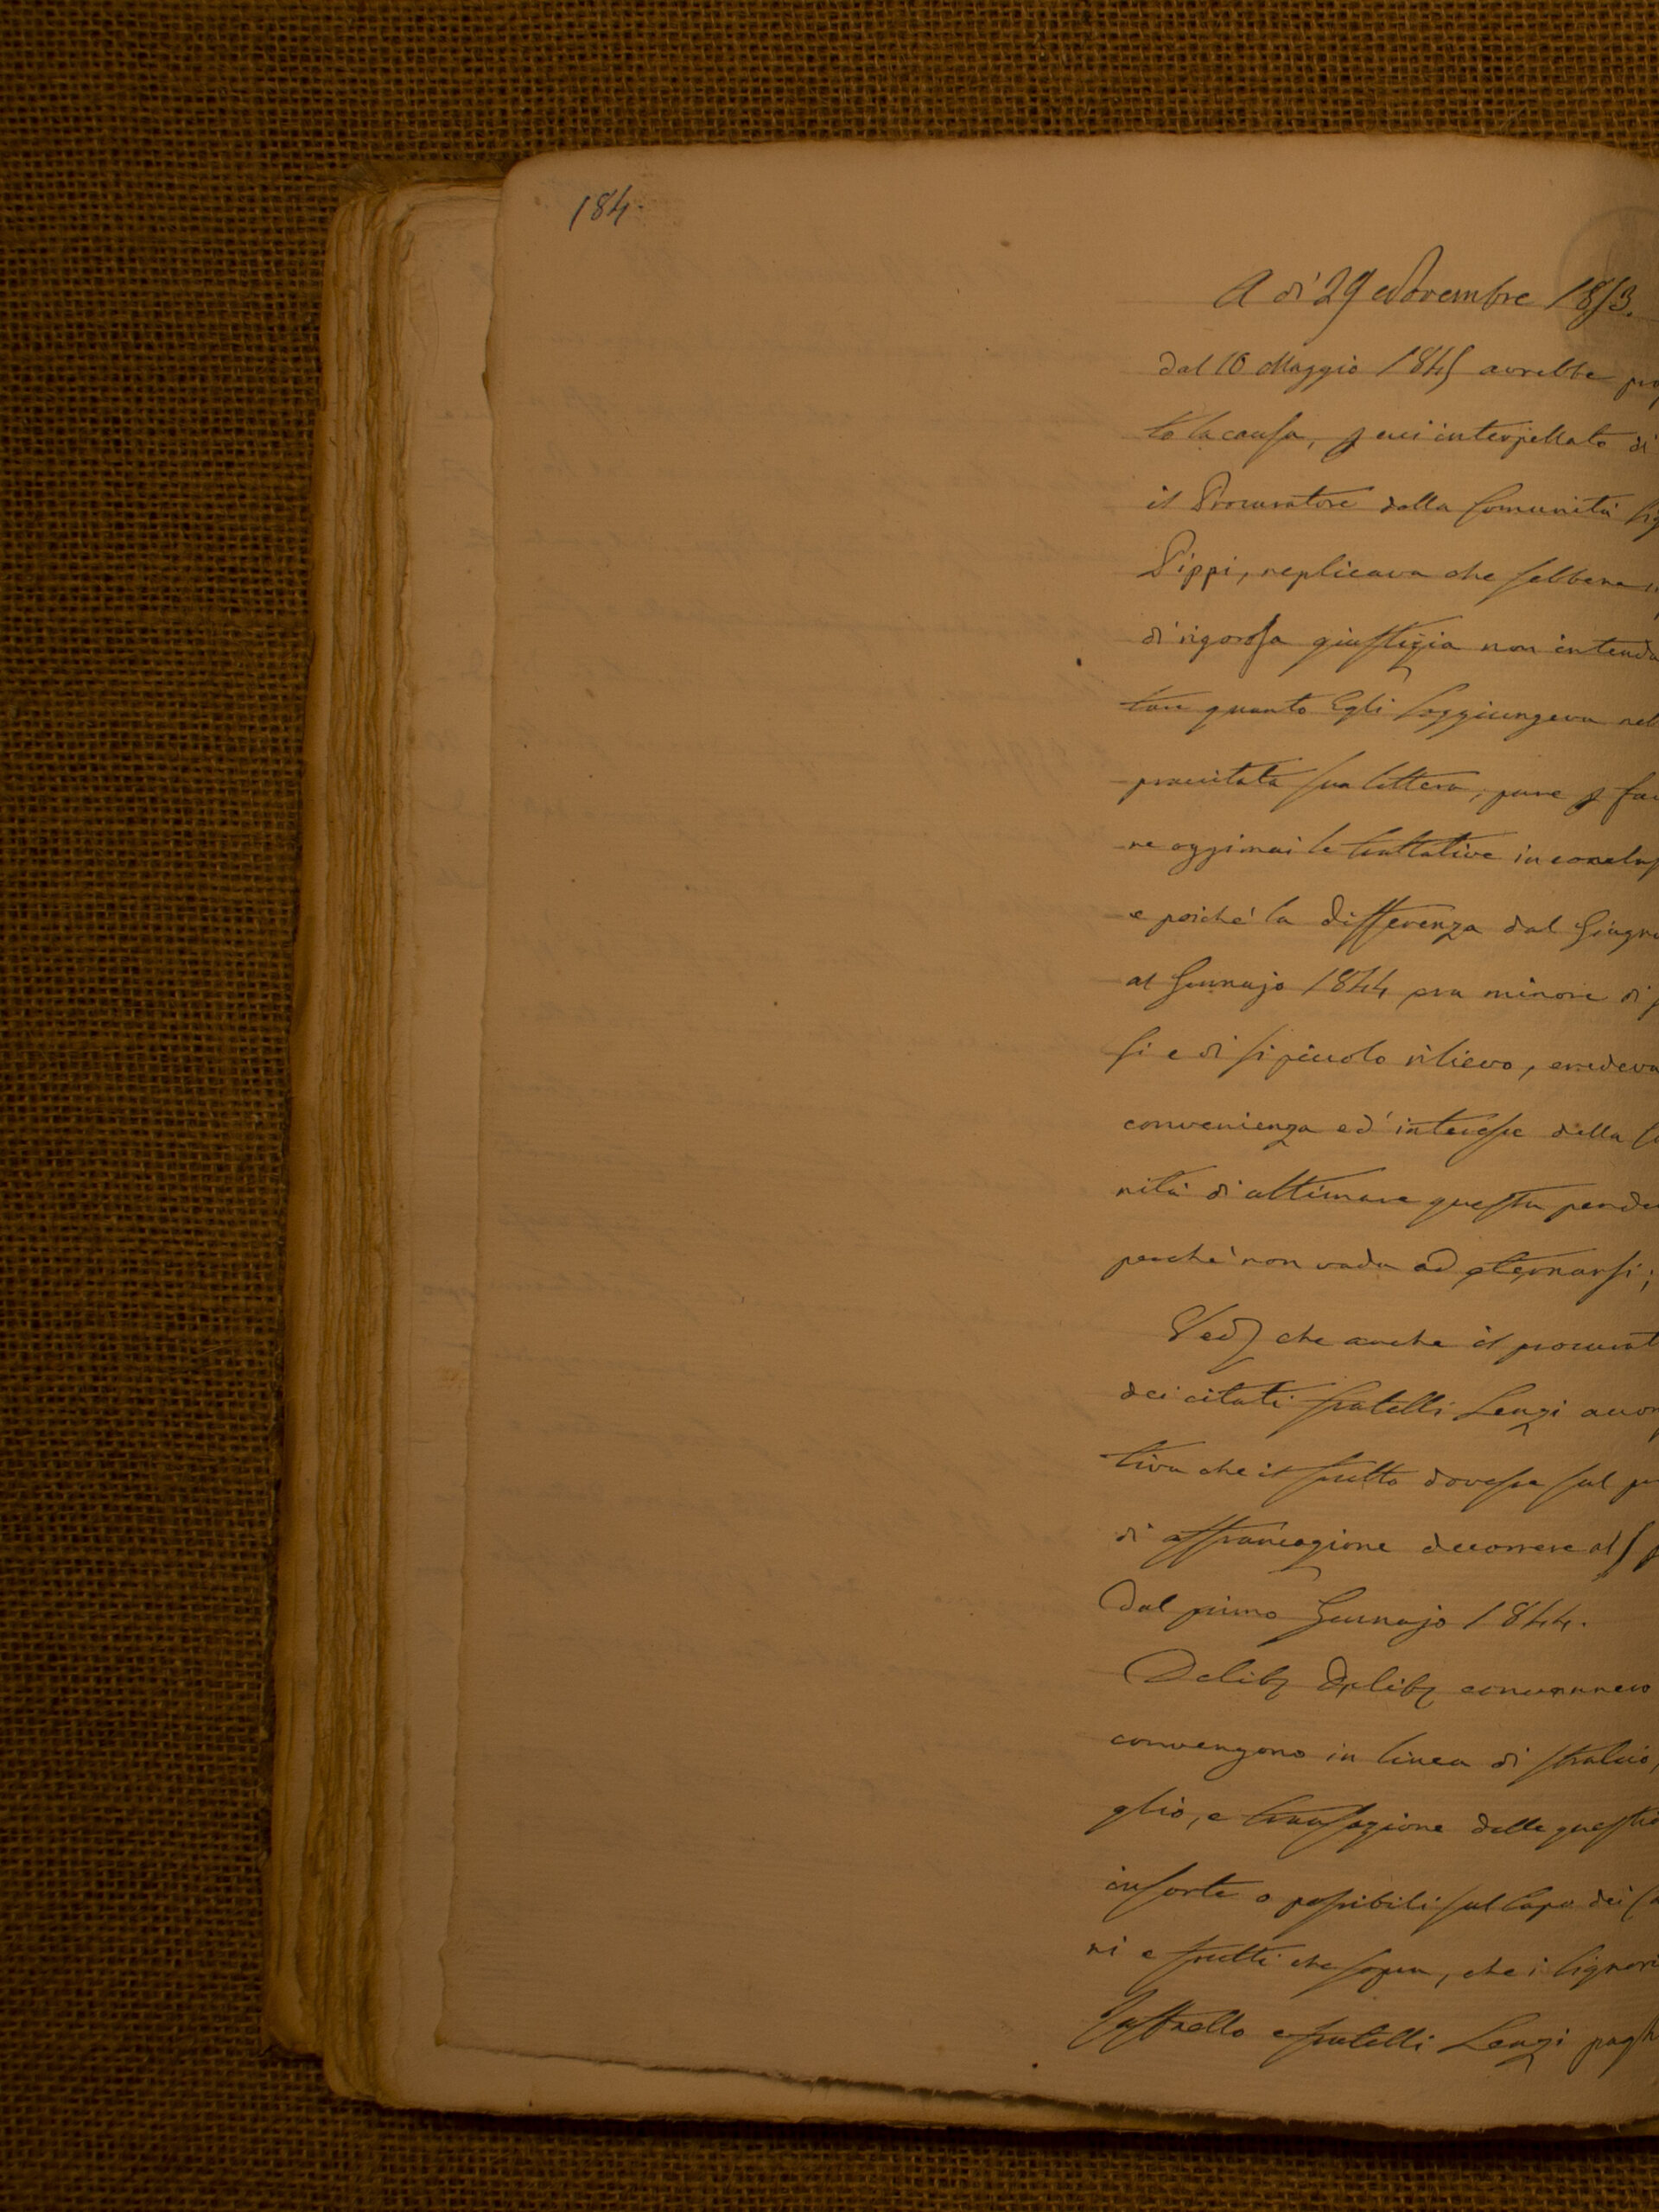 184.
A dì 29 Novembre 1853.
Dal 10 Maggio 1845 avrebbe
to la causa, p cui interpellato di
il Procuratore della Comunità Sig
Pippi, replicava che sebbene
di rigorosa giustizia non intenda
quanto Egli soggiungeva nel
precitata sua lettera, pure p fa
re oggimai le trattative in conclus
e poiché la differenza dal Giugno
al Gennajo 1844 era minore di
si e di si piccolo rilievo, credeva
convenienza ed interesse della Co
nità di ultimare questa pende
perché non vada ad eternarsi;
Ved che anche il procurat
dei citati fratelli Lenzi accon
tiva che il frutto dovesse sul pr
di affrancazione decorrere al 5 p
Dal primo Gennajo 1844.
Delib Delib convennero
convengono in linea di stralcio,
glio, e transazione delle questio
insorte o possibili sul Capo dei Ca
ni e frutti che sopra, che i Signori
e fratelli Lenzi pagh